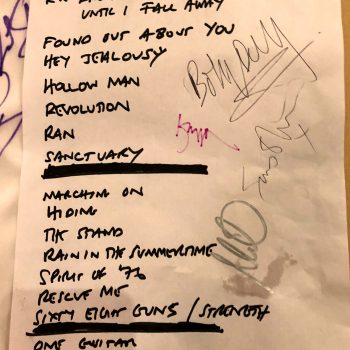 UNTIL I FALL AWAY
FOUND OUT ABOUT YOU
HEY JEALOUSY
HOLLOW MAN
REVOLUTION
RAN
SANCTUARY
MARCHING ON
HIDING
THE STAND
RAIN IN THE SUMMERTIME
SPIRIT OF '76
RESCUE ME
SIXTY EIGHT GUNS / STRENGTH
ONE GUITAR